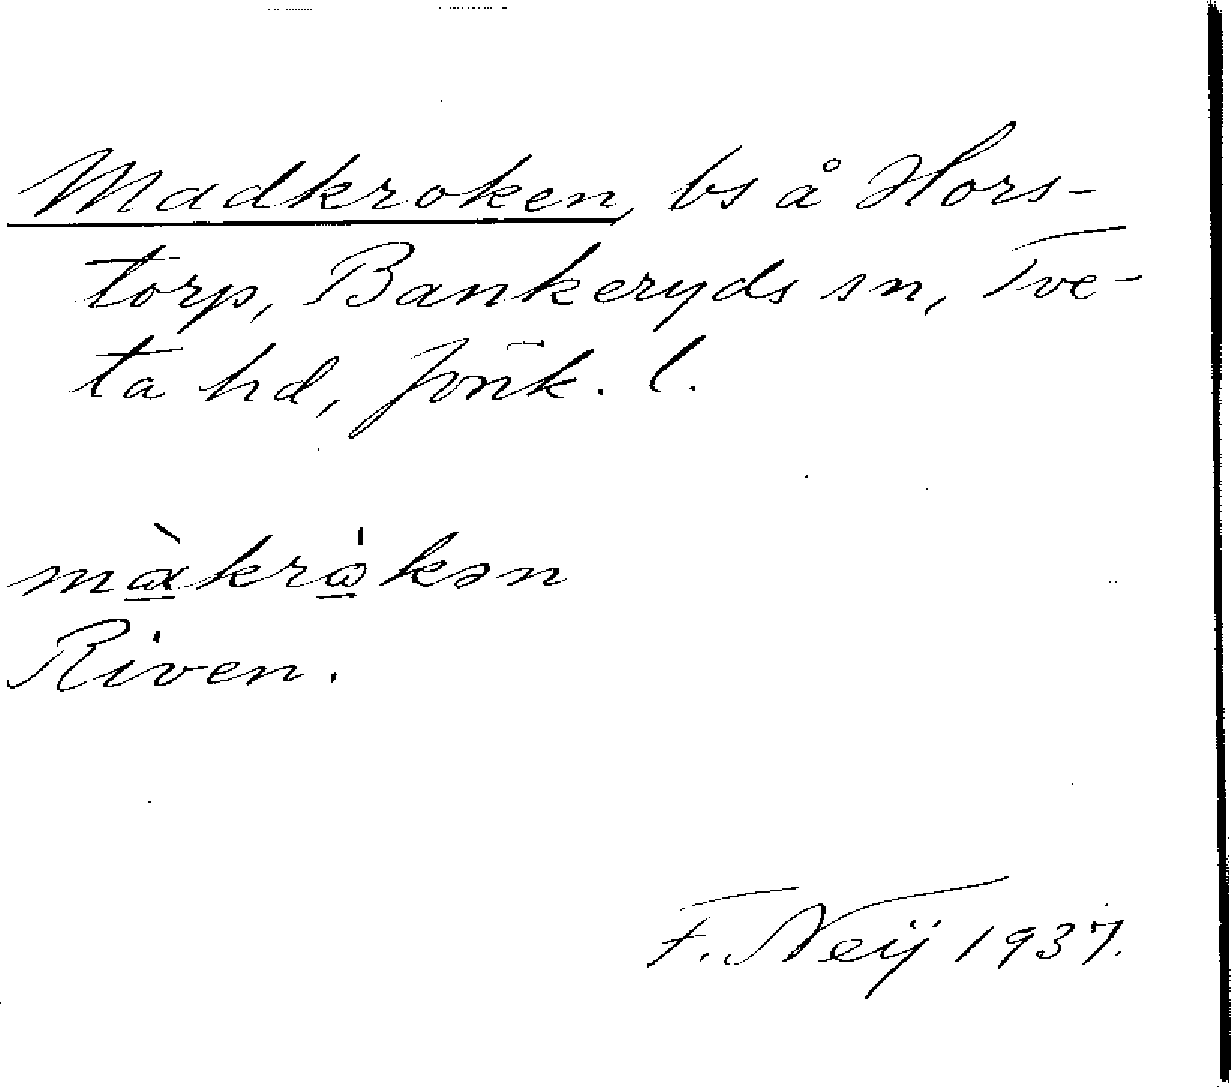 Madkroken, bs å Hors-
torp, Bankeryds sn, Tve-
ta hd, Jönk. l.
màkrȧkən
Riven.
F. Neij 1937.